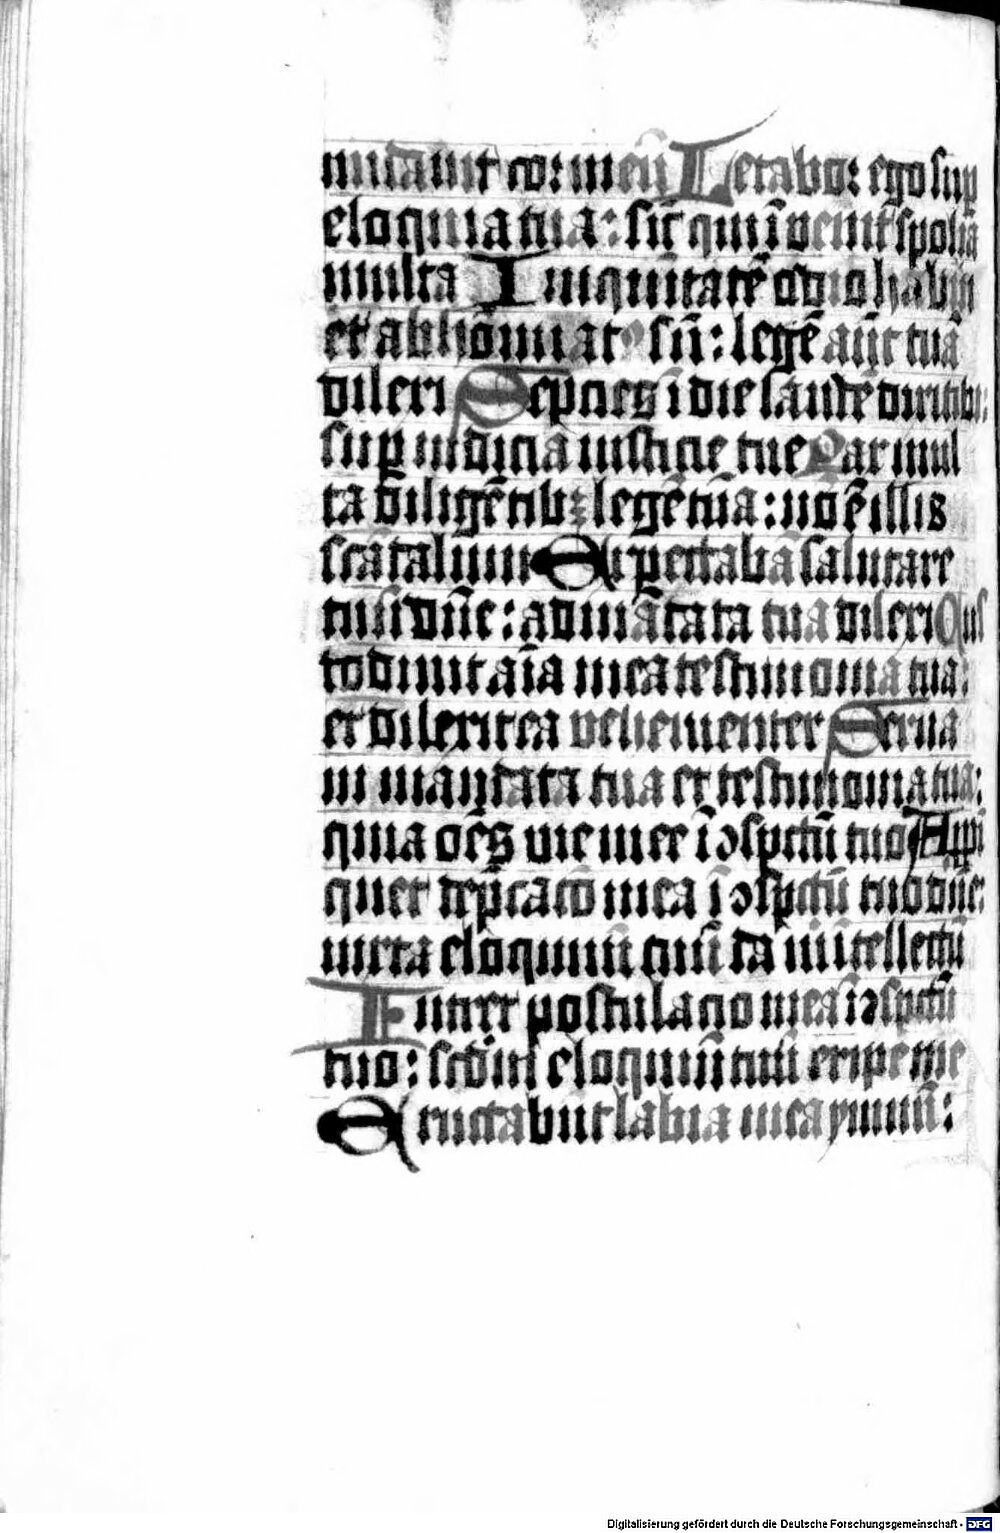 midauit cor meū Letabor ego suꝑ
eloquia tua: sic̄ qui īvenit spolia
multa Iniquitatē odio habui
et abhōinatꝰ sū: legē aūt tuā
dilexi Septies ī die laudē dixi tibi:
suꝑ iudicia iusticie tue Pax mul
ta diligētibꝫ legē tuā: nō ē illis
scādalum Exspectabā salutare
tuū dn̄e: ad mādata tua dilexi Cus
todiuit aīa mea testimonia tua:
et dilexit ea vehementer Serua
ui mandata tua et testimonia tua:
quia oēs vie mee ī ↄspctū tuo Appi
quet dep̄catō mea ī ↄspctū tuo dn̄e:
iuxta eloquiū tuū da m̄ itellectū
Intret postulacio mea ī ↄspctū
tuo: scd̄m eloquiū tuū eripe me
Eructabūt labia mea ymnū:
Digitalisierung gefördert durch die Deutsche Forschungsgemeinschaft - DFG